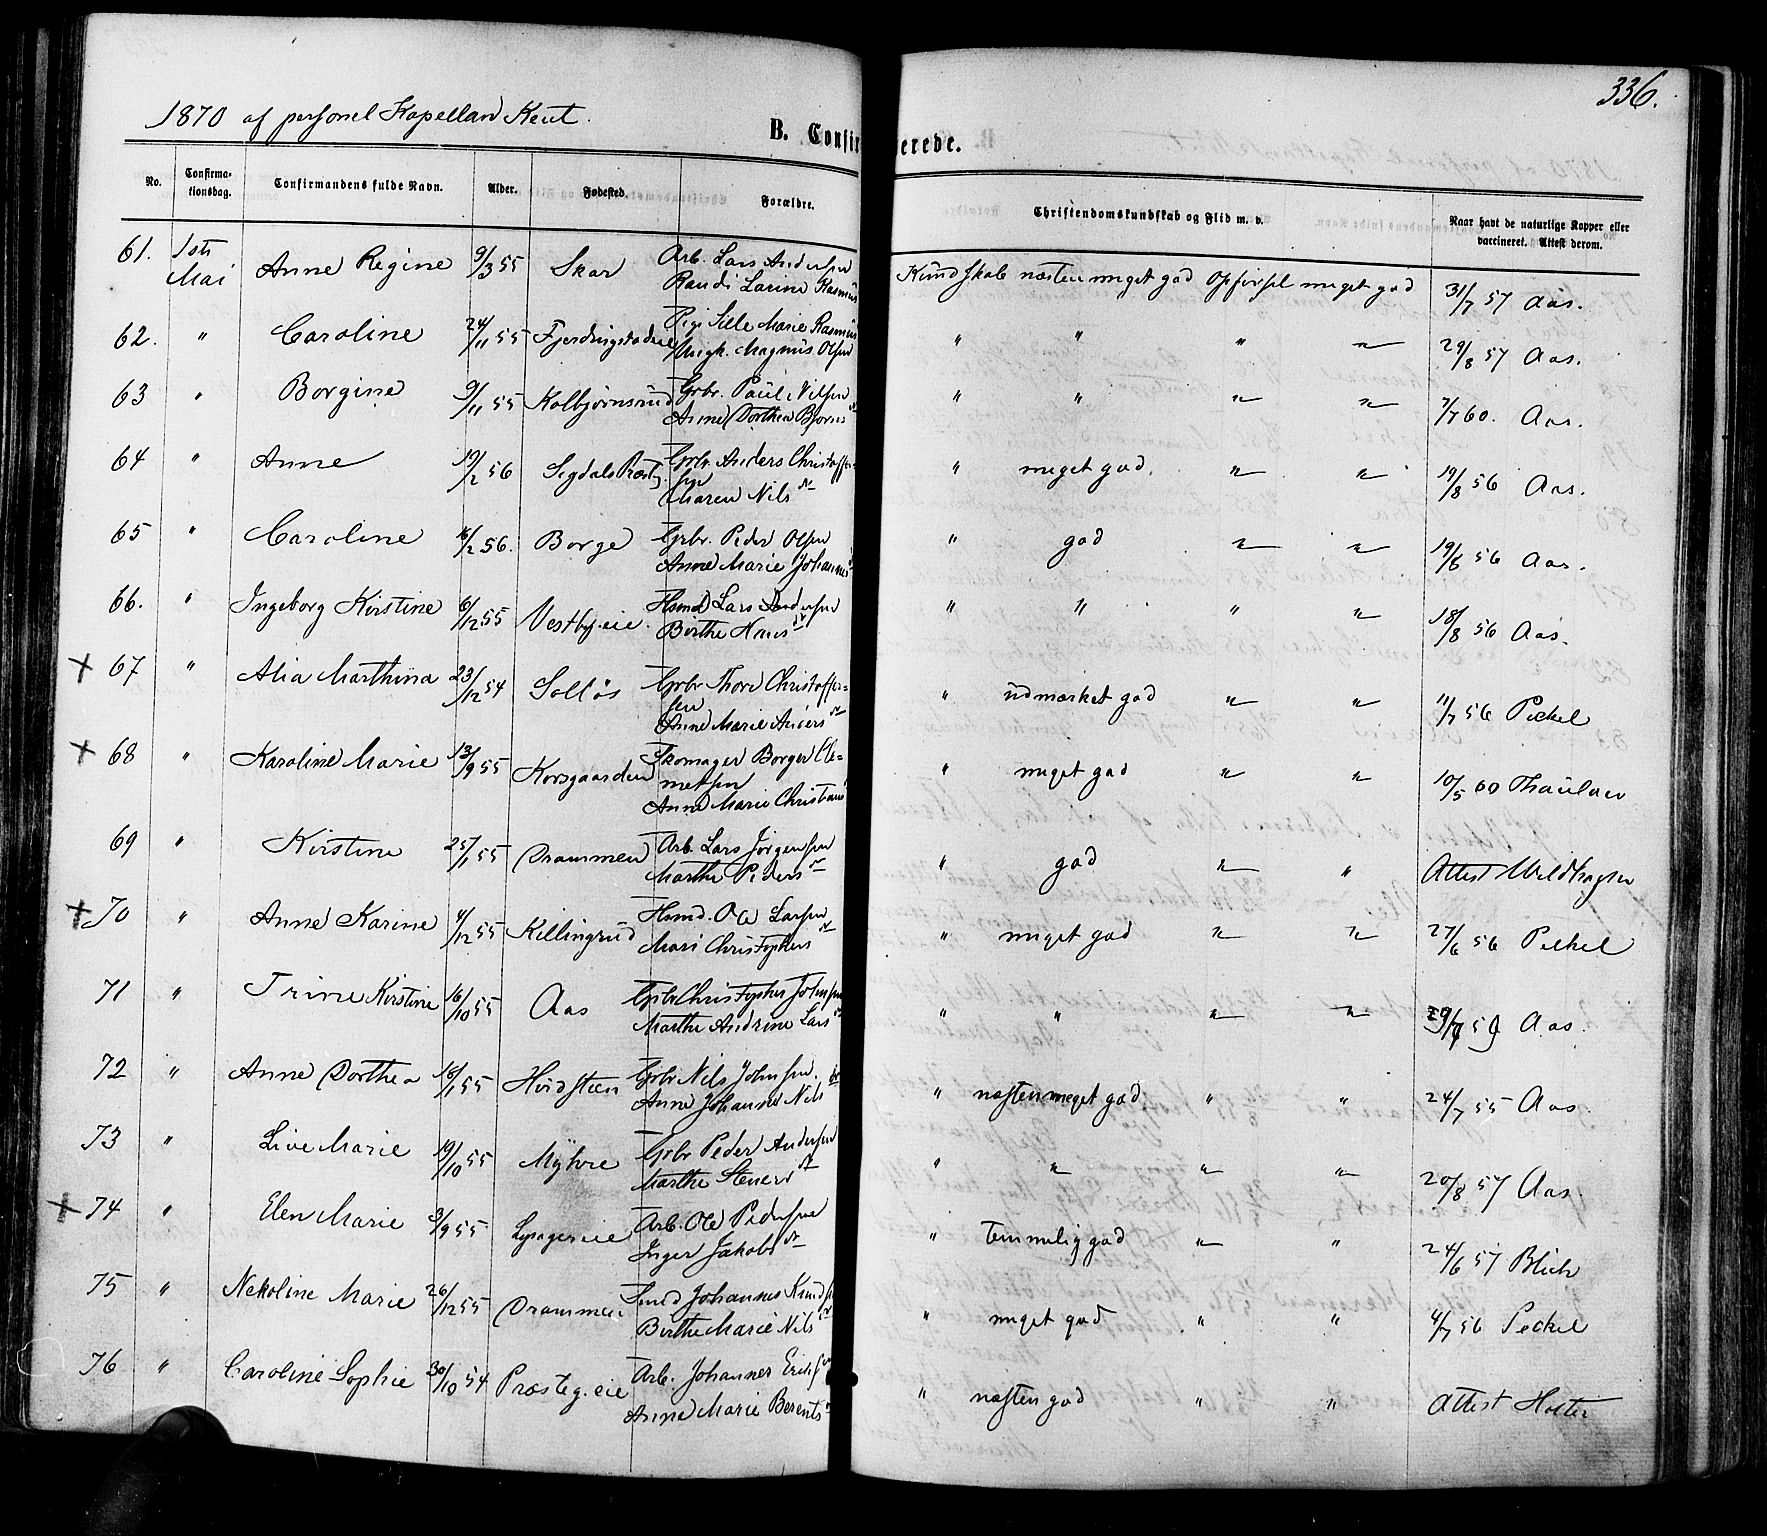 336.
1870 af personel Kapellan Kent.
B. Confir erede.
No. Confirma- tionsdag. Confirmandens fulde Navn. Alder. Fødested. Forældre. Christendomskundskab og Flid m. v. Naar havt de naturlige Kopper eller vaccineret. Attest derom.
61. 1ste Mai Anne Regine 9/3 55 Skar Arb. Lars Andersen Randi Larine Rasmus Kundskab næsten meget god Opførsel meget god 31/7 57 Aas.
62. " Caroline 24/11 55 Fjerdingstadeie Pige Sille Marie Rasmus Ungk. Magnus Olsen " " " " 29/8 57 Aas.
63 " Borgine 9/11 55 Kolbjørnsrud Grbr. Paul Nilsen Anne Dorthea Bjørns dr " " " " 7/7 60. Aas.
64 " Anne 19/2 56 Sigdals Præstg. Grbr Anders Christoffersen Maren Nils dr " meget god. " " 19/8 56 Aas.
65 " Caroline 16/2 56. Borge Grbr. Peder Olsen Anne Marie Johannes " god " " 19/8 56 Aas.
66. " Ingeborg Kirstine 6/12 55 Vestby.eie. Hsmd Lars Andersen Birthe Hans dr " " " " 18/8 56 Aas.
+ 67 " Alia Marthina 23/12 54 Solløs Grbr Thore Christoffer= sen Anne Marie Anders dr " udmærket god " " 11/7 56 Peckel
+ 68 " Karoline Marie 13/9 55 Korsgaarden Skomager Borger Cle= metsen Anne Marie Christians " meget god " " 10/5 60 Thaulow
69 " Kirstine 25/1 55 Drammen Arb. Lars Jørgensen Marthe Peders dr " god " " Attest Wildhagen
+ 70 " Anne Karine 4/12 55 Killingrud Hsmd. Ole Larsen Mari Christophers dr " meget god " " 27/6 56 Peckel
71 " Trine Kirstine 16/10 55 Aas Grbr Christopher Johnsen Marthe Andrine Lars dr " " " " 29/7 59 Aas.
72 " Anne Dorthea 16/1 55 Hvidsteen Grbr Nils Johnsen. Anne Johanne Nils dr " næsten meget god " " 24/7 55 Aas.
73 " Live Marie 19/10 55 Myhre Grbr Peder Andersen Marthe Steners dr " " " " 20/8 57 Aas.
+ 74 " Elen Marie 3/9 55 Lysagereie Arb. Ole Pedersen Inger Jakobs dr " temmelig god " " 24/6 57 Blich
75 " Nekoline Marie 26/12 55 Drammen Smed Johannes Knuds Birthe Marie Nils dr " meget god " " 4/7 56 Peckel
76 " Caroline Sophie 30/10 54 Præsteg.eie Arb. Johannes Eriksen Anne Marie Berents dr " næsten god " " Attest Holter